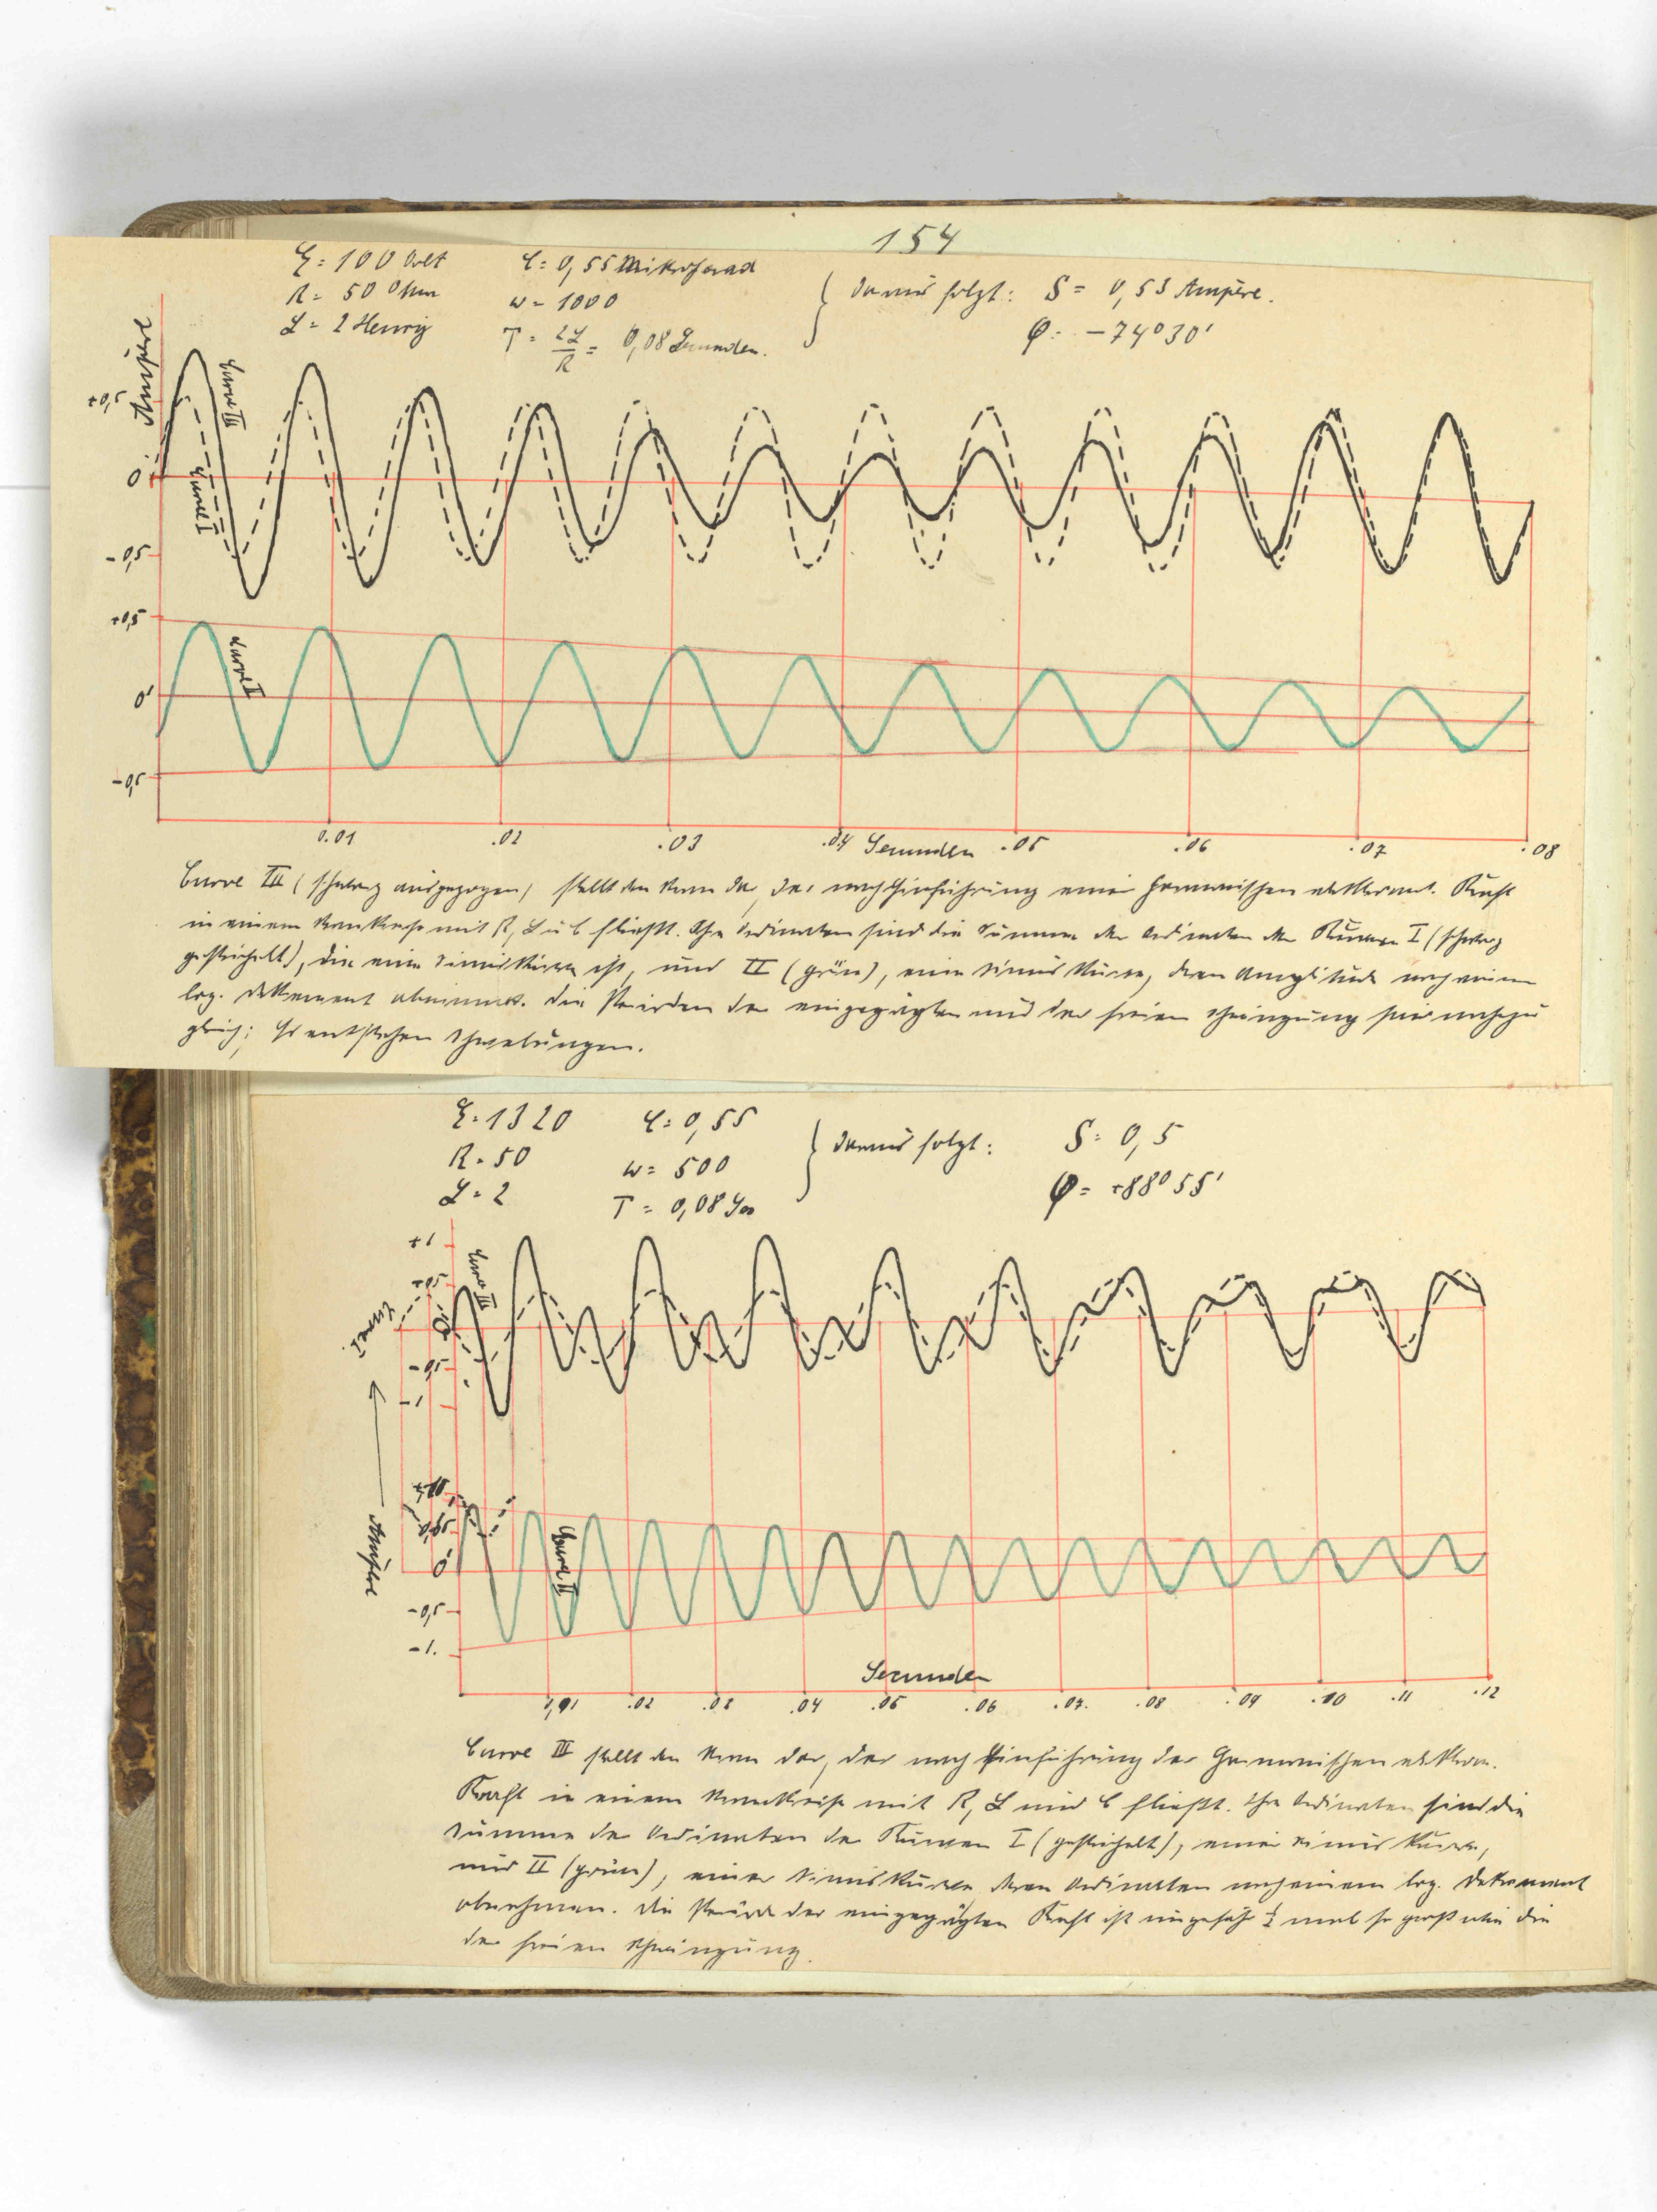 154
E = 100 Volt C = 0,55 Mikrofarad
R = 50 Ohm w = 1000 daraus folgt: S = 0,53 Ampère.
L = 2 Henry T = 2L/R = 0,08 Secunden. φ = −74°30'
Ampère
+0,5
0
-0,5
Curve III
Curve I
+0,5
0'
-0,5
Curve II
0.01 .02 .03 .04 Secunden .05 .06 .07 .08
Curve III (schwarz ausgezogen) stellt den Strom dar, der nach Einführung einer harmonischen elektromot. Kraft
in einem Stromkreise mit R, L u C fließt. Ihre Ordinaten sind die Summe der Ordinaten der Kurven I (schwarz
gestrichelt), die eine Sinuskurve ist, und II (grün), eine Sinuskurve, deren Amplitude nach einem
log. Dekrement abnimmt. Die Perioden der eingeprägten und der freien Schwingung sind nahezu
gleich; es entstehen Schwebungen.
E = 1320 C = 0,55
R = 50 w = 500 daraus folgt: S = 0,5
L = 2 T = 0,08 φ = +88°55'
+1
+0,5
0
-0,5
-1
Curve III
Curve I
Ampère
0
-0,5
-1.
Curve II
Secunden
0,01 .02 .03 .04 .05 .06 .07. .08 .09 .10 .11 .12
Curve III stellt den Strom dar, der nach Einführung der harmonischen elektrom.
Kraft in einem Stromkreise mit R, L und C fließt. Ihre Ordinaten sind die
Summe der Ordinaten der Kurven I (gestrichelt), einer Sinuskurve,
und II (grün), einer Sinuskurve deren Ordinaten nach einem log. Dekrement
abnehmen. Die Periode der eingeprägten Kraft ist ungefähr ½ mal so groß wie die
der freien Schwingung.